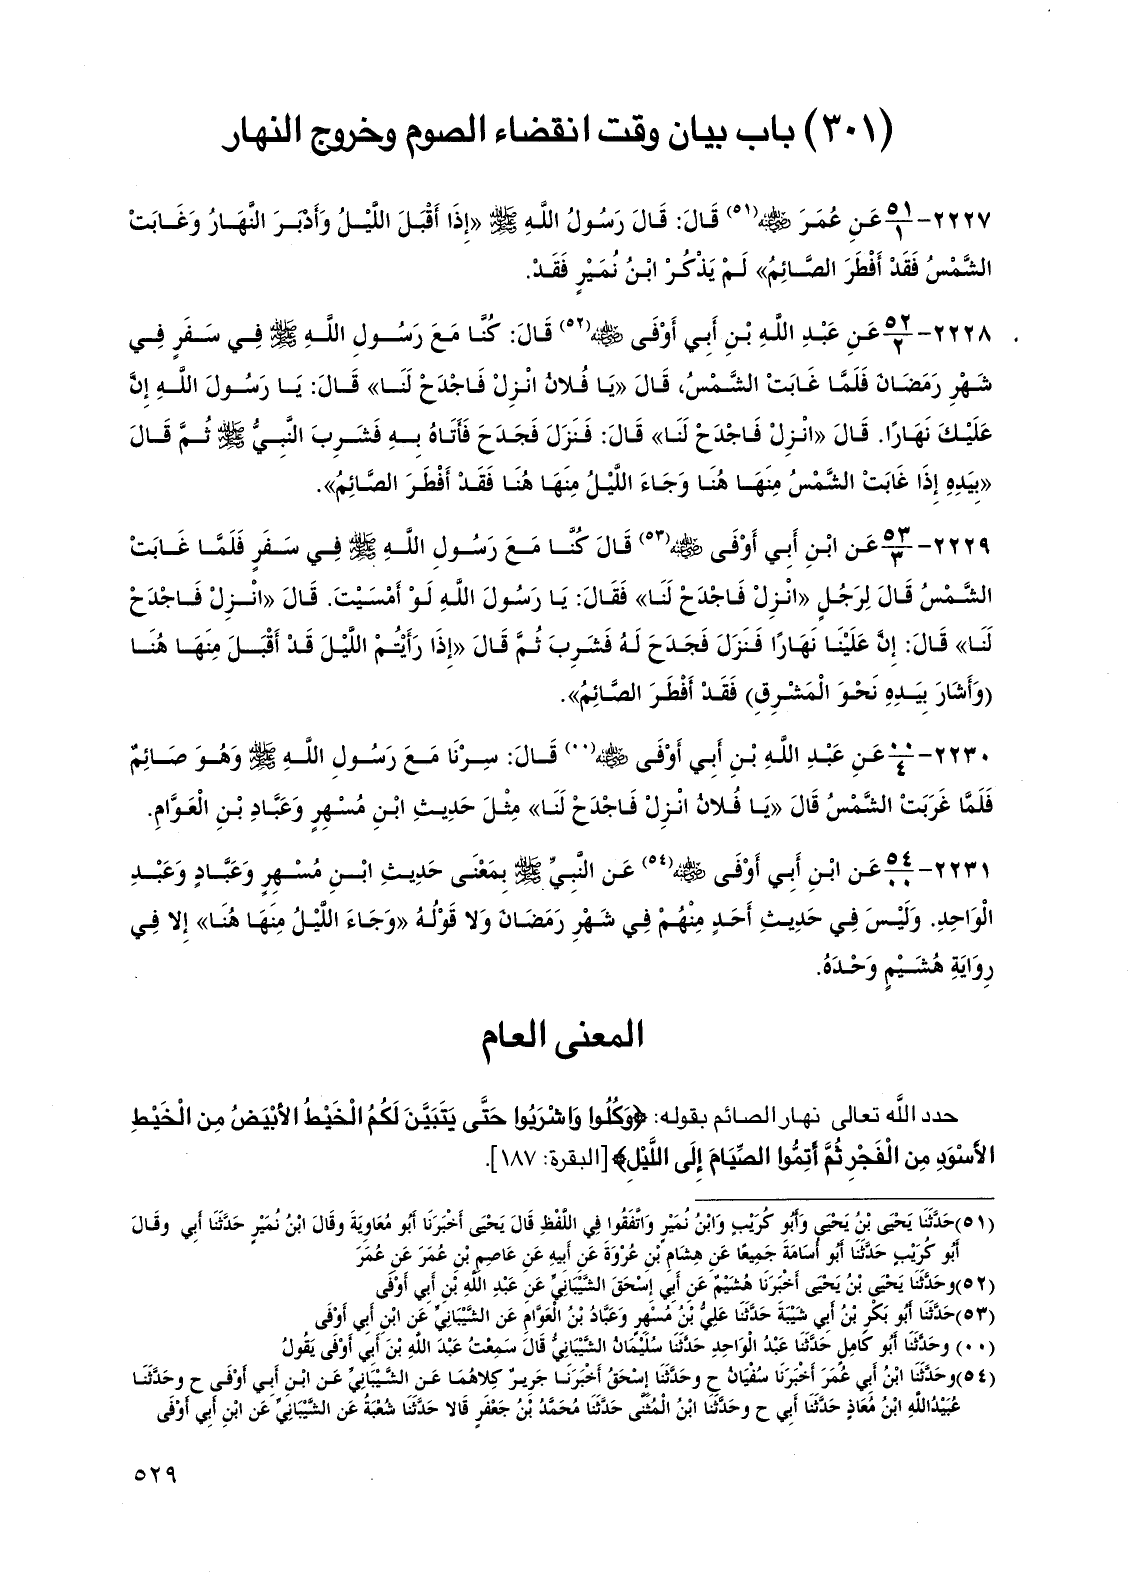 (٣٠١) باب بيان وقت انقضاء الصوم وخروج النهار
٢٢٢٧- ٥١/١ عَنِ عُمَرَ ﵁(٥١) قَالَ: قَالَ رَسُولُ اللَّهِ ﷺ «إِذَا أَقْبَلَ اللَّيْلُ وَأَدْبَرَ النَّهَارُ وَغَابَتْ
الشَّمْسُ فَقَدْ أَفْطَرَ الصَّائِمُ» لَمْ يَذْكُرْ ابْنُ نُمَيْرٍ فَقَدْ.
٢٢٢٨- ٥٢/٢ عَنِ عَبْدِ اللَّهِ بْنِ أَبِي أَوْفَى ﵁(٥٢) قَالَ: كُنَّا مَعَ رَسُولِ اللَّهِ ﷺ فِي سَفَرٍ فِي
شَهْرِ رَمَضَانَ فَلَمَّا غَابَتْ الشَّمْسُ، قَالَ «يَا فُلَانُ انْزِلْ فَاجْدَحْ لَنَا» قَالَ: يَا رَسُولَ اللَّهِ إِنَّ
عَلَيْكَ نَهَارًا. قَالَ «انْزِلْ فَاجْدَحْ لَنَا» قَالَ: فَنَزَلَ فَجَدَحَ فَأَتَاهُ بِهِ فَشَرِبَ النَّبِيُّ ﷺ ثُمَّ قَالَ
«بِيَدِهِ إِذَا غَابَتْ الشَّمْسُ مِنْهَا هُنَا وَجَاءَ اللَّيْلُ مِنْهَا هُنَا فَقَدْ أَفْطَرَ الصَّائِمُ».
٢٢٢٩- ٥٣/٣ عَن ابْنِ أَبِي أَوْفَى ﵁(٥٣) قَالَ كُنَّا مَعَ رَسُولِ اللَّهِ ﷺ فِي سَفَرٍ فَلَمَّا غَابَتْ
الشَّمْسُ قَالَ لِرَجُلٍ «انْزِلْ فَاجْدَحْ لَنَا» فَقَالَ: يَا رَسُولَ اللَّهِ لَوْ أَمْسَيْتَ. قَالَ «انْزِلْ فَاجْدَحْ
لَنَا» قَالَ: إِنَّ عَلَيْنَا نَهَارًا فَنَزَلَ فَجَدَحَ لَهُ فَشَرِبَ ثُمَّ قَالَ «إِذَا رَأَيْتُمْ اللَّيْلَ قَدْ أَقْبَلَ مِنْهَا هُنَا
(وَأَشَارَ بِيَدِهِ نَحْوَ الْمَشْرِقِ) فَقَدْ أَفْطَرَ الصَّائِمُ».
٢٢٣٠- ٠٠/٤ عَنِ عَبْدِ اللَّهِ بْنِ أَبِي أَوْفَى ﵁(٠٠) قَالَ: سِرْنَا مَعَ رَسُولِ اللَّهِ ﷺ وَهُوَ صَائِمٌ
فَلَمَّا غَرَبَتْ الشَّمْسُ قَالَ «يَا فُلَانُ انْزِلْ فَاجْدَحْ لَنَا» مِثْلَ حَدِيثِ ابْنِ مُسْهِرٍ وَعَبَّادِ بْنِ الْعَوَّامِ.
٢٢٣١- ٥٤/٠٠ عَن ابْنِ أَبِي أَوْفَى ﵁(٥٤) عَن النَّبِيِّ ﷺ بِمَعْنَى حَدِيثِ ابْنِ مُسْهِرٍ وَعَبَّادٍ وَعَبْدِ
الْوَاحِدِ. وَلَيْسَ فِي حَدِيثِ أَحَدٍ مِنْهُمْ فِي شَهْرِ رَمَضَانَ وَلا قَوْلُهُ «وَجَاءَ اللَّيْلُ مِنْهَا هُنَا» إِلا فِي
رِوَايَةِ هُشَيْمٍ وَحْدَهُ.
المعنى العام
حدد الله تعالى نهار الصائم بقوله: ﴿وَكُلُوا وَاشْرَبُوا حَتَّى يَتَبَيَّنَ لَكُمُ الْخَيْطُ الأَبْيَضُ مِنَ الْخَيْطِ
الأَسْوَدِ مِنَ الْفَجْرِ ثُمَّ أَتِمُّوا الصِّيَامَ إِلَى اللَّيْلِ﴾ [البقرة: ١٨٧].
(٥١)حَدَّثَنَا يَحْيَى بْنُ يَحْيَى وَأَبُو كُرَيْبٍ وَابْنُ نُمَيْرٍ وَاتَّفَقُوا فِي اللَّفْظِ قَالَ يَحْيَى أَخْبَرَنَا أَبُو مُعَاوِيَةَ وقَالَ ابْنُ نُمَيْرٍ حَدَّثَنَا أَبِي وقَالَ
أَبُو كُرَيْبٍ حَدَّثَنَا أَبُو أُسَامَةَ جَمِيعًا عَن هِشَامِ بْنِ عُرْوَةَ عَن أَبِيهِ عَن عَاصِمِ بْنِ عُمَرَ عَن عُمَرَ
(٥٢)وحَدَّثَنَا يَحْيَى بْنُ يَحْيَى أَخْبَرَنَا هُشَيْمٌ عَن أَبِي إِسْحَقَ الشَّيْبَانِيِّ عَن عَبْدِ اللَّهِ بْنِ أَبِي أَوْفَى
(٥٣)حَدَّثَنَا أَبُو بَكْرِ بْنُ أَبِي شَيْبَةَ حَدَّثَنَا عَلِيُّ بْنُ مُسْهِرٍ وَعَبَّادُ بْنُ الْعَوَّامِ عَن الشَّيْبَانِيِّ عَن ابْنِ أَبِي أَوْفَى
(٠٠) وحَدَّثَنَا أَبُو كَامِلٍ حَدَّثَنَا عَبْدُ الْوَاحِدِ حَدَّثَنَا سُلَيْمَانُ الشَّيْبَانِيُّ قَالَ سَمِعْتُ عَبْدَ اللَّهِ بْنَ أَبِي أَوْفَى يَقُولُ
(٥٤)وحَدَّثَنَا ابْنُ أَبِي عُمَرَ أَخْبَرَنَا سُفْيَانُ ح وحَدَّثَنَا إِسْحَقُ أَخْبَرَنَا جَرِيرٌ كِلاهُمَا عَن الشَّيْبَانِيِّ عَن ابْنِ أَبِي أَوْفَى ح وحَدَّثَنَا
عُبَيْدُاللَّهِ ابْنُ مُعَاذٍ حَدَّثَنَا أَبِي ح وحَدَّثَنَا ابْنُ الْمُثَنَّى حَدَّثَنَا مُحَمَّدُ بْنُ جَعْفَرٍ قَالا حَدَّثَنَا شُعْبَةُ عَن الشَّيْبَانِيِّ عَن ابْنِ أَبِي أَوْفَى
٥٢٩